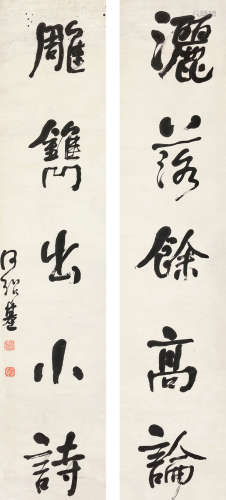 灑落餘高論
雕鐫出小詩
何紹基